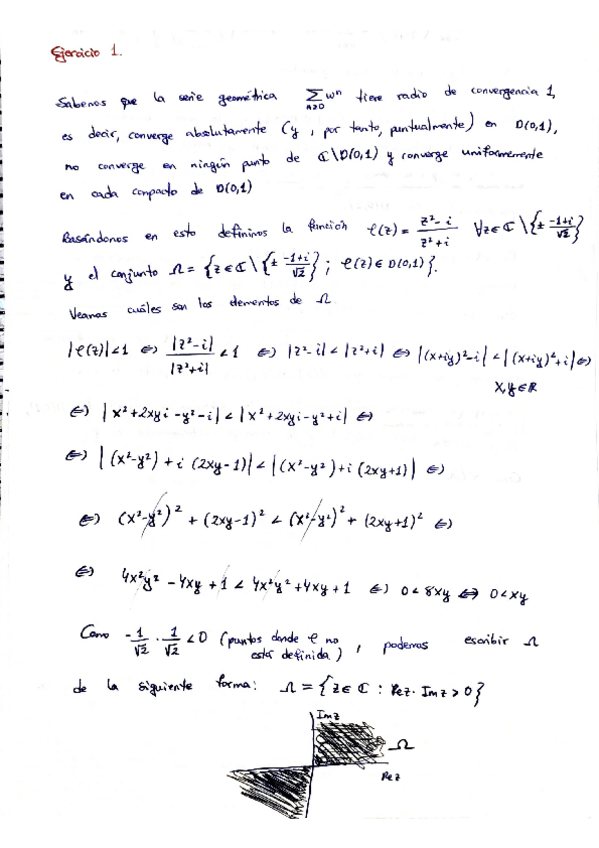 Ejercicio 1.
Sabemos que la serie geométrica ∑_{n≥0} wⁿ tiene radio de convergencia 1,
es decir, converge absolutamente (y, por tanto, puntualmente) en D(0,1),
no converge en ningún punto de ℂ\D(0,1) y converge uniformemente
en cada compacto de D(0,1)
Basándonos en esto definimos la función φ(z) = (z²-i)/(z²+i) ∀z∈ℂ\{± (-1+i)/√2}
y el conjunto Ω = {z∈ℂ\{± (-1+i)/√2} ; φ(z)∈D(0,1)}.
Veamos cuáles son los elementos de Ω
|φ(z)|<1 ⇔ |z²-i|/|z²+i| < 1 ⇔ |z²-i| < |z²+i| ⇔ |(x+iy)²-i| < |(x+iy)²+i| ⇔
x,y∈ℝ
⇔ |x²+2xyi-y²-i| < |x²+2xyi-y²+i| ⇔
⇔ |(x²-y²)+i(2xy-1)| < |(x²-y²)+i(2xy+1)| ⇔
⇔ (x²-y²)² + (2xy-1)² < (x²-y²)² + (2xy+1)² ⇔
⇔ 4x²y² - 4xy + 1 < 4x²y² + 4xy + 1 ⇔ 0 < 8xy ⇔ 0 < xy
Como -1/√2 · 1/√2 < 0 (puntos donde φ no está definida), podemos escribir Ω
de la siguiente forma: Ω = {z∈ℂ : Re z · Im z > 0}
Im z
Ω
Re z